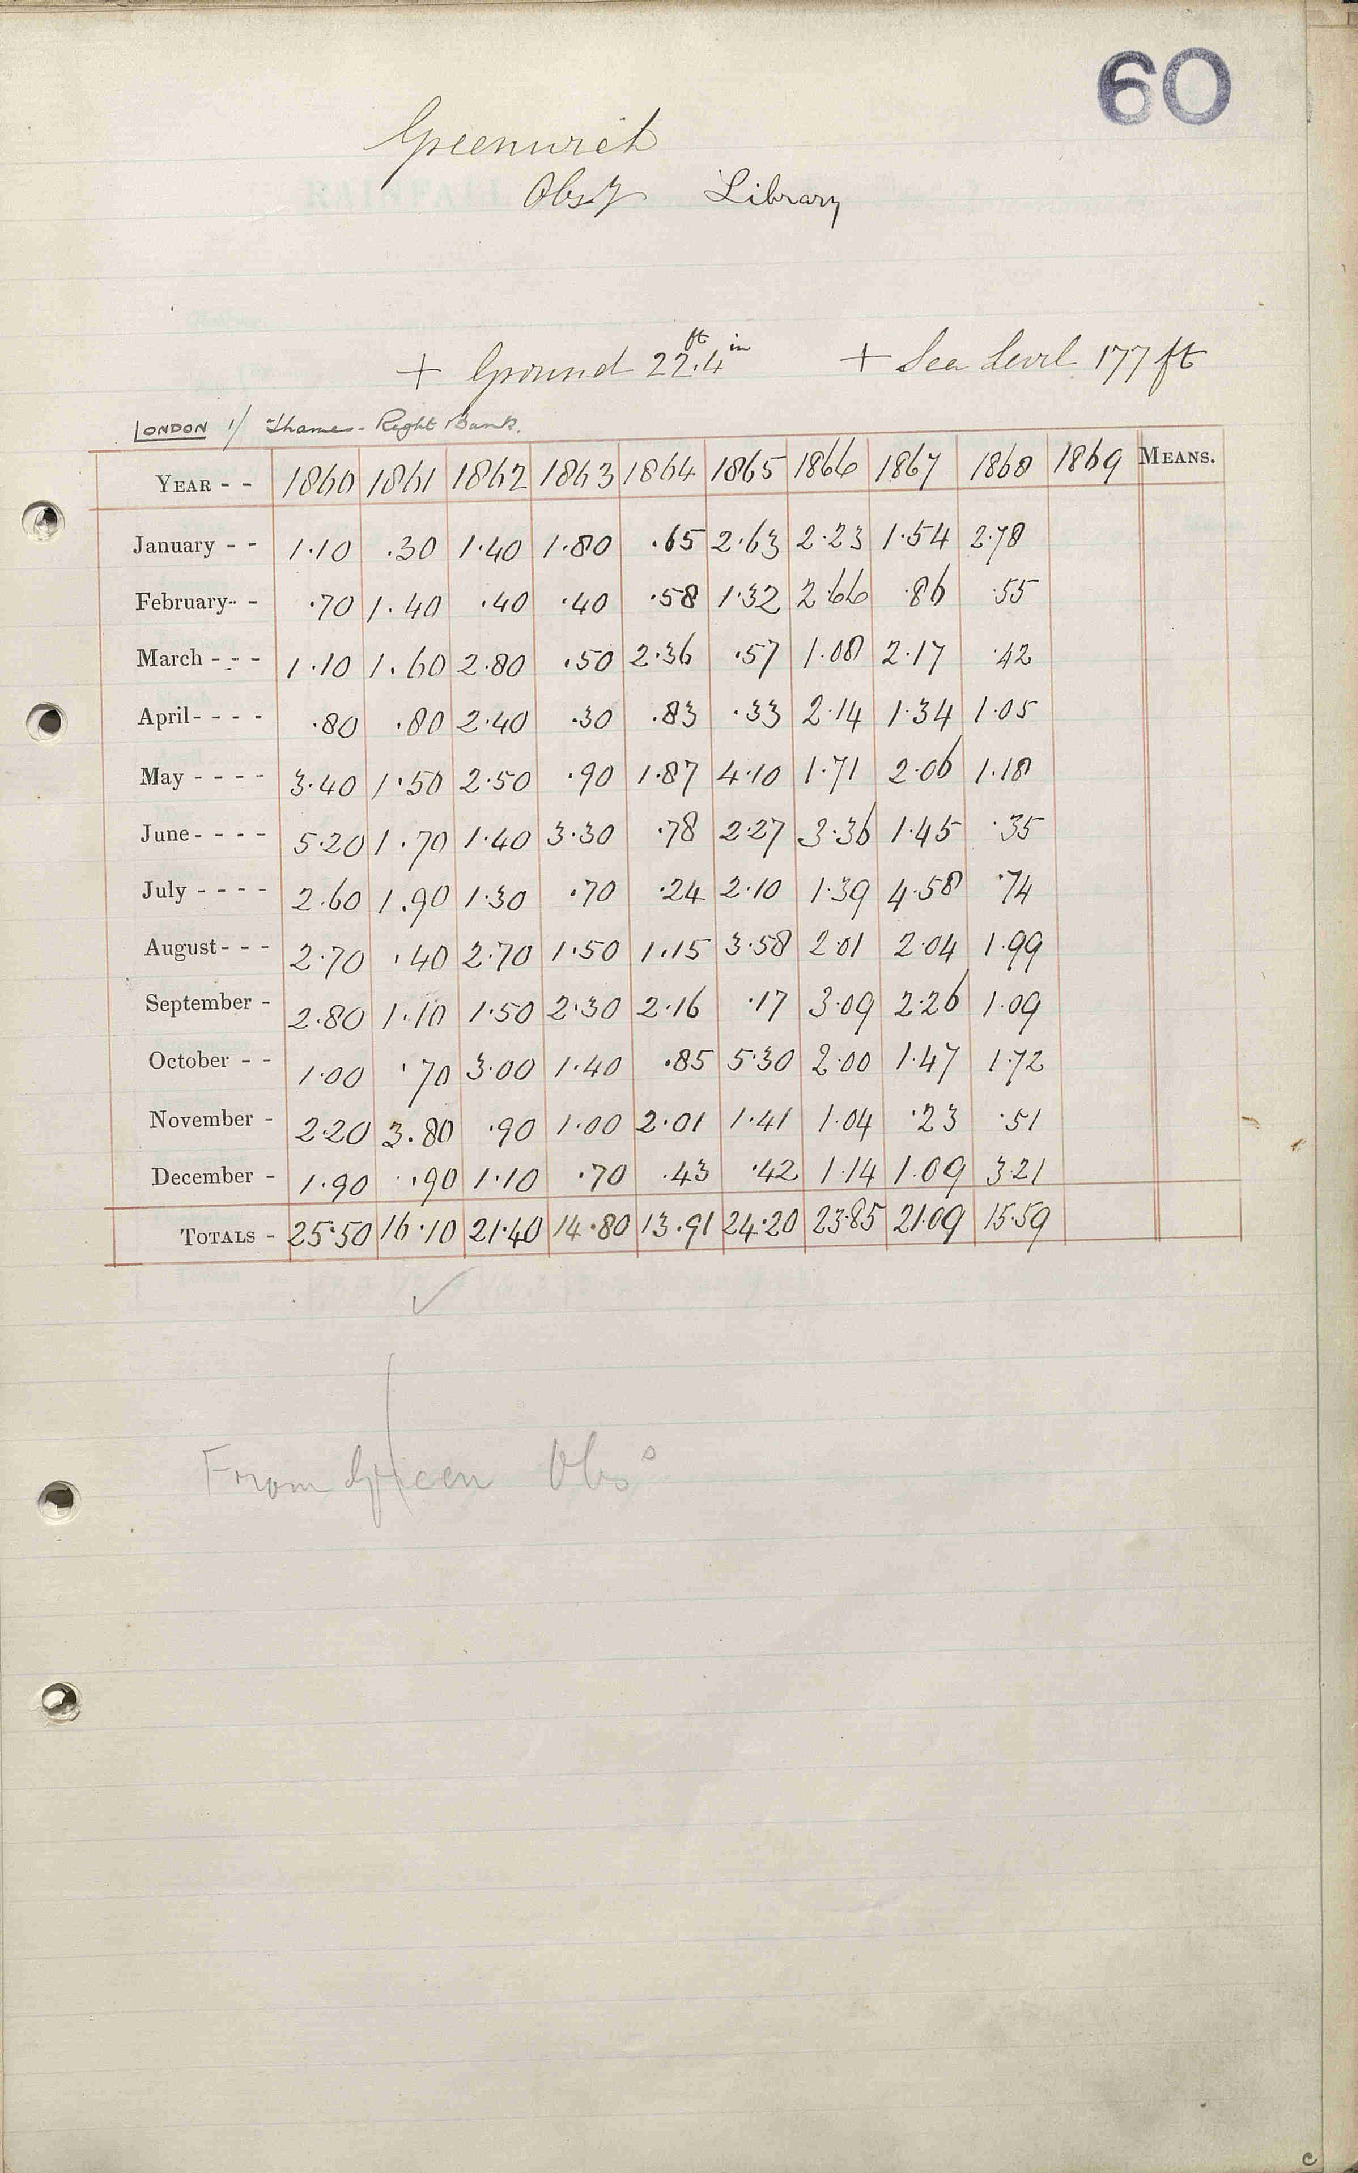 60
Greenwich
Obsy Library
+ Ground 22.4 ft in + Sea Level 177 ft
LONDON 1/ Thames - Right Bank.
YEAR - - 1860 1861 1862 1863 1864 1865 1866 1867 1868 1869 MEANS.
January - - 1.10 .30 1.40 1.80 .65 2.63 2.23 1.54 2.78
February - - .70 1.40 .40 .40 .58 1.32 2.66 .86 .55
March - - - 1.10 1.60 2.80 .50 2.36 .57 1.08 2.17 .42
April - - - - .80 .80 2.40 .30 .83 .33 2.14 1.34 1.05
May - - - - 3.40 1.50 2.50 .90 1.87 4.10 1.71 2.06 1.18
June - - - - 5.20 1.70 1.40 3.30 .78 2.27 3.36 1.45 .35
July - - - - 2.60 1.90 1.30 .70 .24 2.10 1.39 4.58 .74
August - - - 2.70 .40 2.70 1.50 1.15 3.58 2.01 2.04 1.99
September - 2.80 1.10 1.50 2.30 2.16 .17 3.09 2.26 1.09
October - - 1.00 .70 3.00 1.40 .85 5.30 2.00 1.47 1.72
November - 2.20 3.80 .90 1.00 2.01 1.41 1.04 .23 .51
December - 1.90 .90 1.10 .70 .43 .42 1.14 1.09 3.21
TOTALS - 25.50 16.10 21.40 14.80 13.91 24.20 23.85 21.09 15.59
From Green Obs